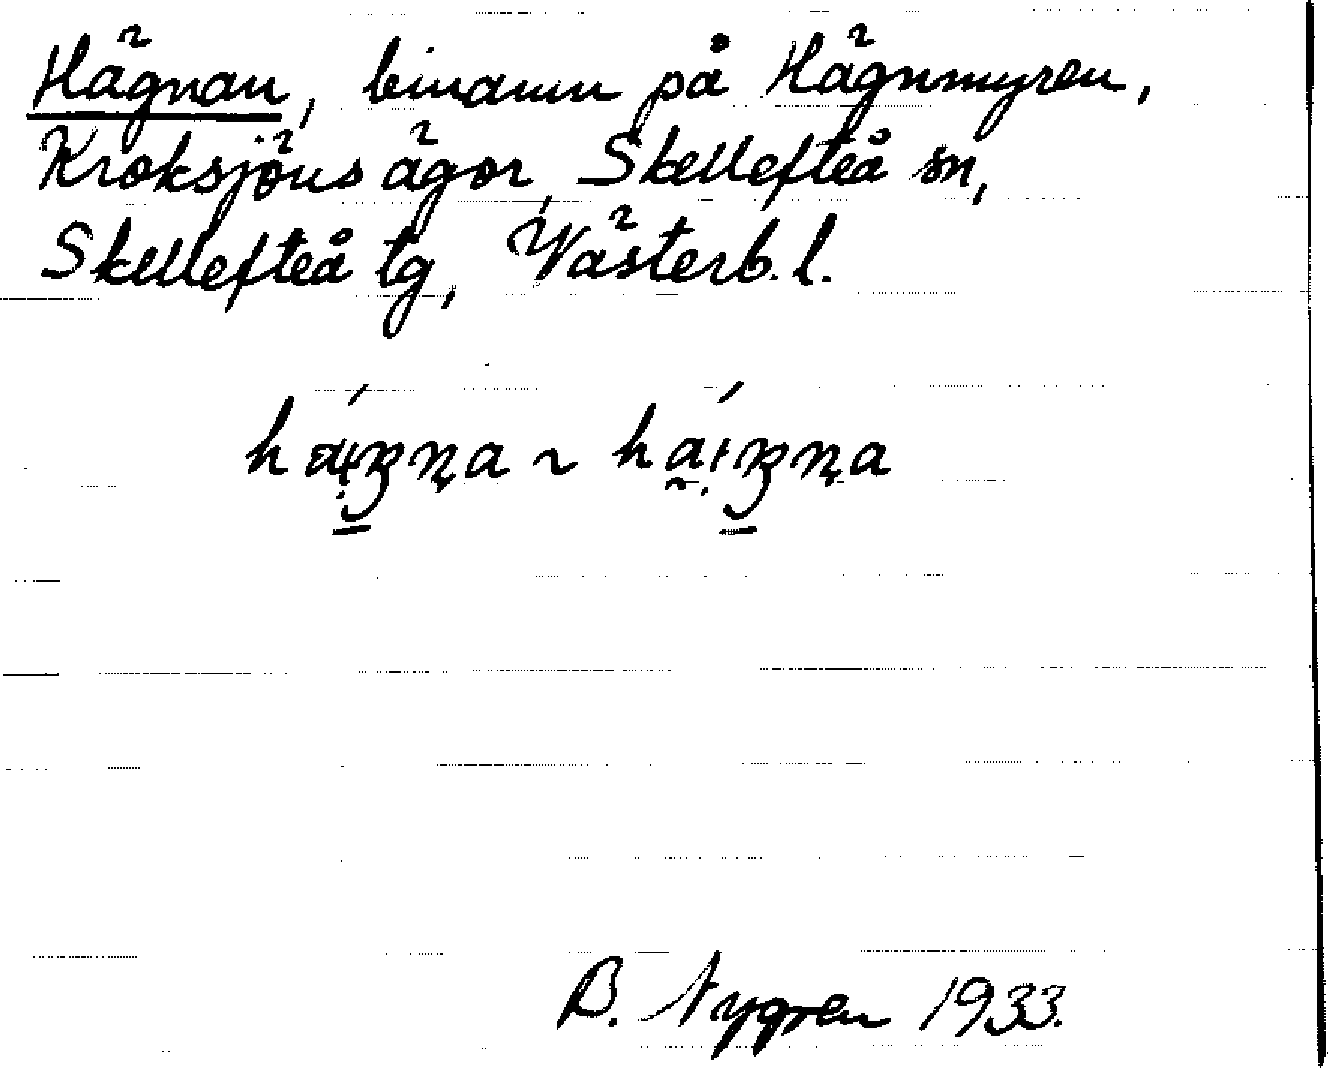 Hägnan, binamn på Hägnmyren,
Kroksjöns ägor, Skellefteå sn,
Skellefteå tg, Västerb. l.
B. Nygren 1933.